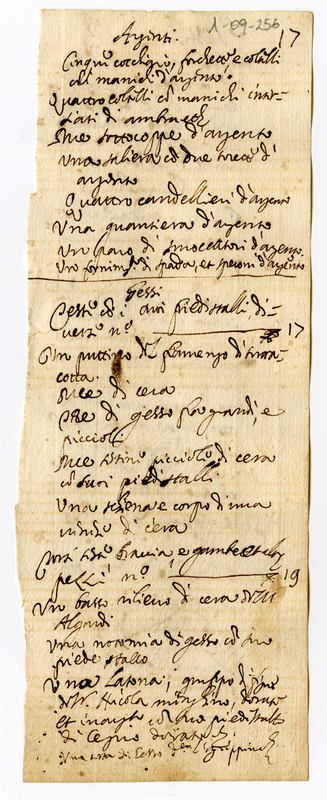 1-09-256
17
Argenti.
Cinque cocchiari, forchette e coltelli
col manichi d'argento.
Quattro coltelli co manichi inter-
siati di ambra
Due sottocoppe d'argento
Una saliera co due d'
argento
Quattro candellieri d'argento
Una guantiera d'argento
Un paro di smoccolatori d'argento.
Un fornim.to di spada, et speroni d'argento
Gessi
Teste co i suoi piedistalli, di-
verse nº 17
Un puttino del flamengo di terra
cotta.
Due di cera
Tre di gesso fra grandi, e
piccioli
Due testine picciole di cera
co suoi piedistalli
Una schena e corpo di una
di cera
teste braccia, e gambe et
pezzi nº 19
Un basso rilievo di cera dell'
Algardi
Una notomia di gesso co suo
piede stallo
Una Latona, gruppo di
di Nicola
et co suo piedistallo
di legno dorato
Una testa di Gesso